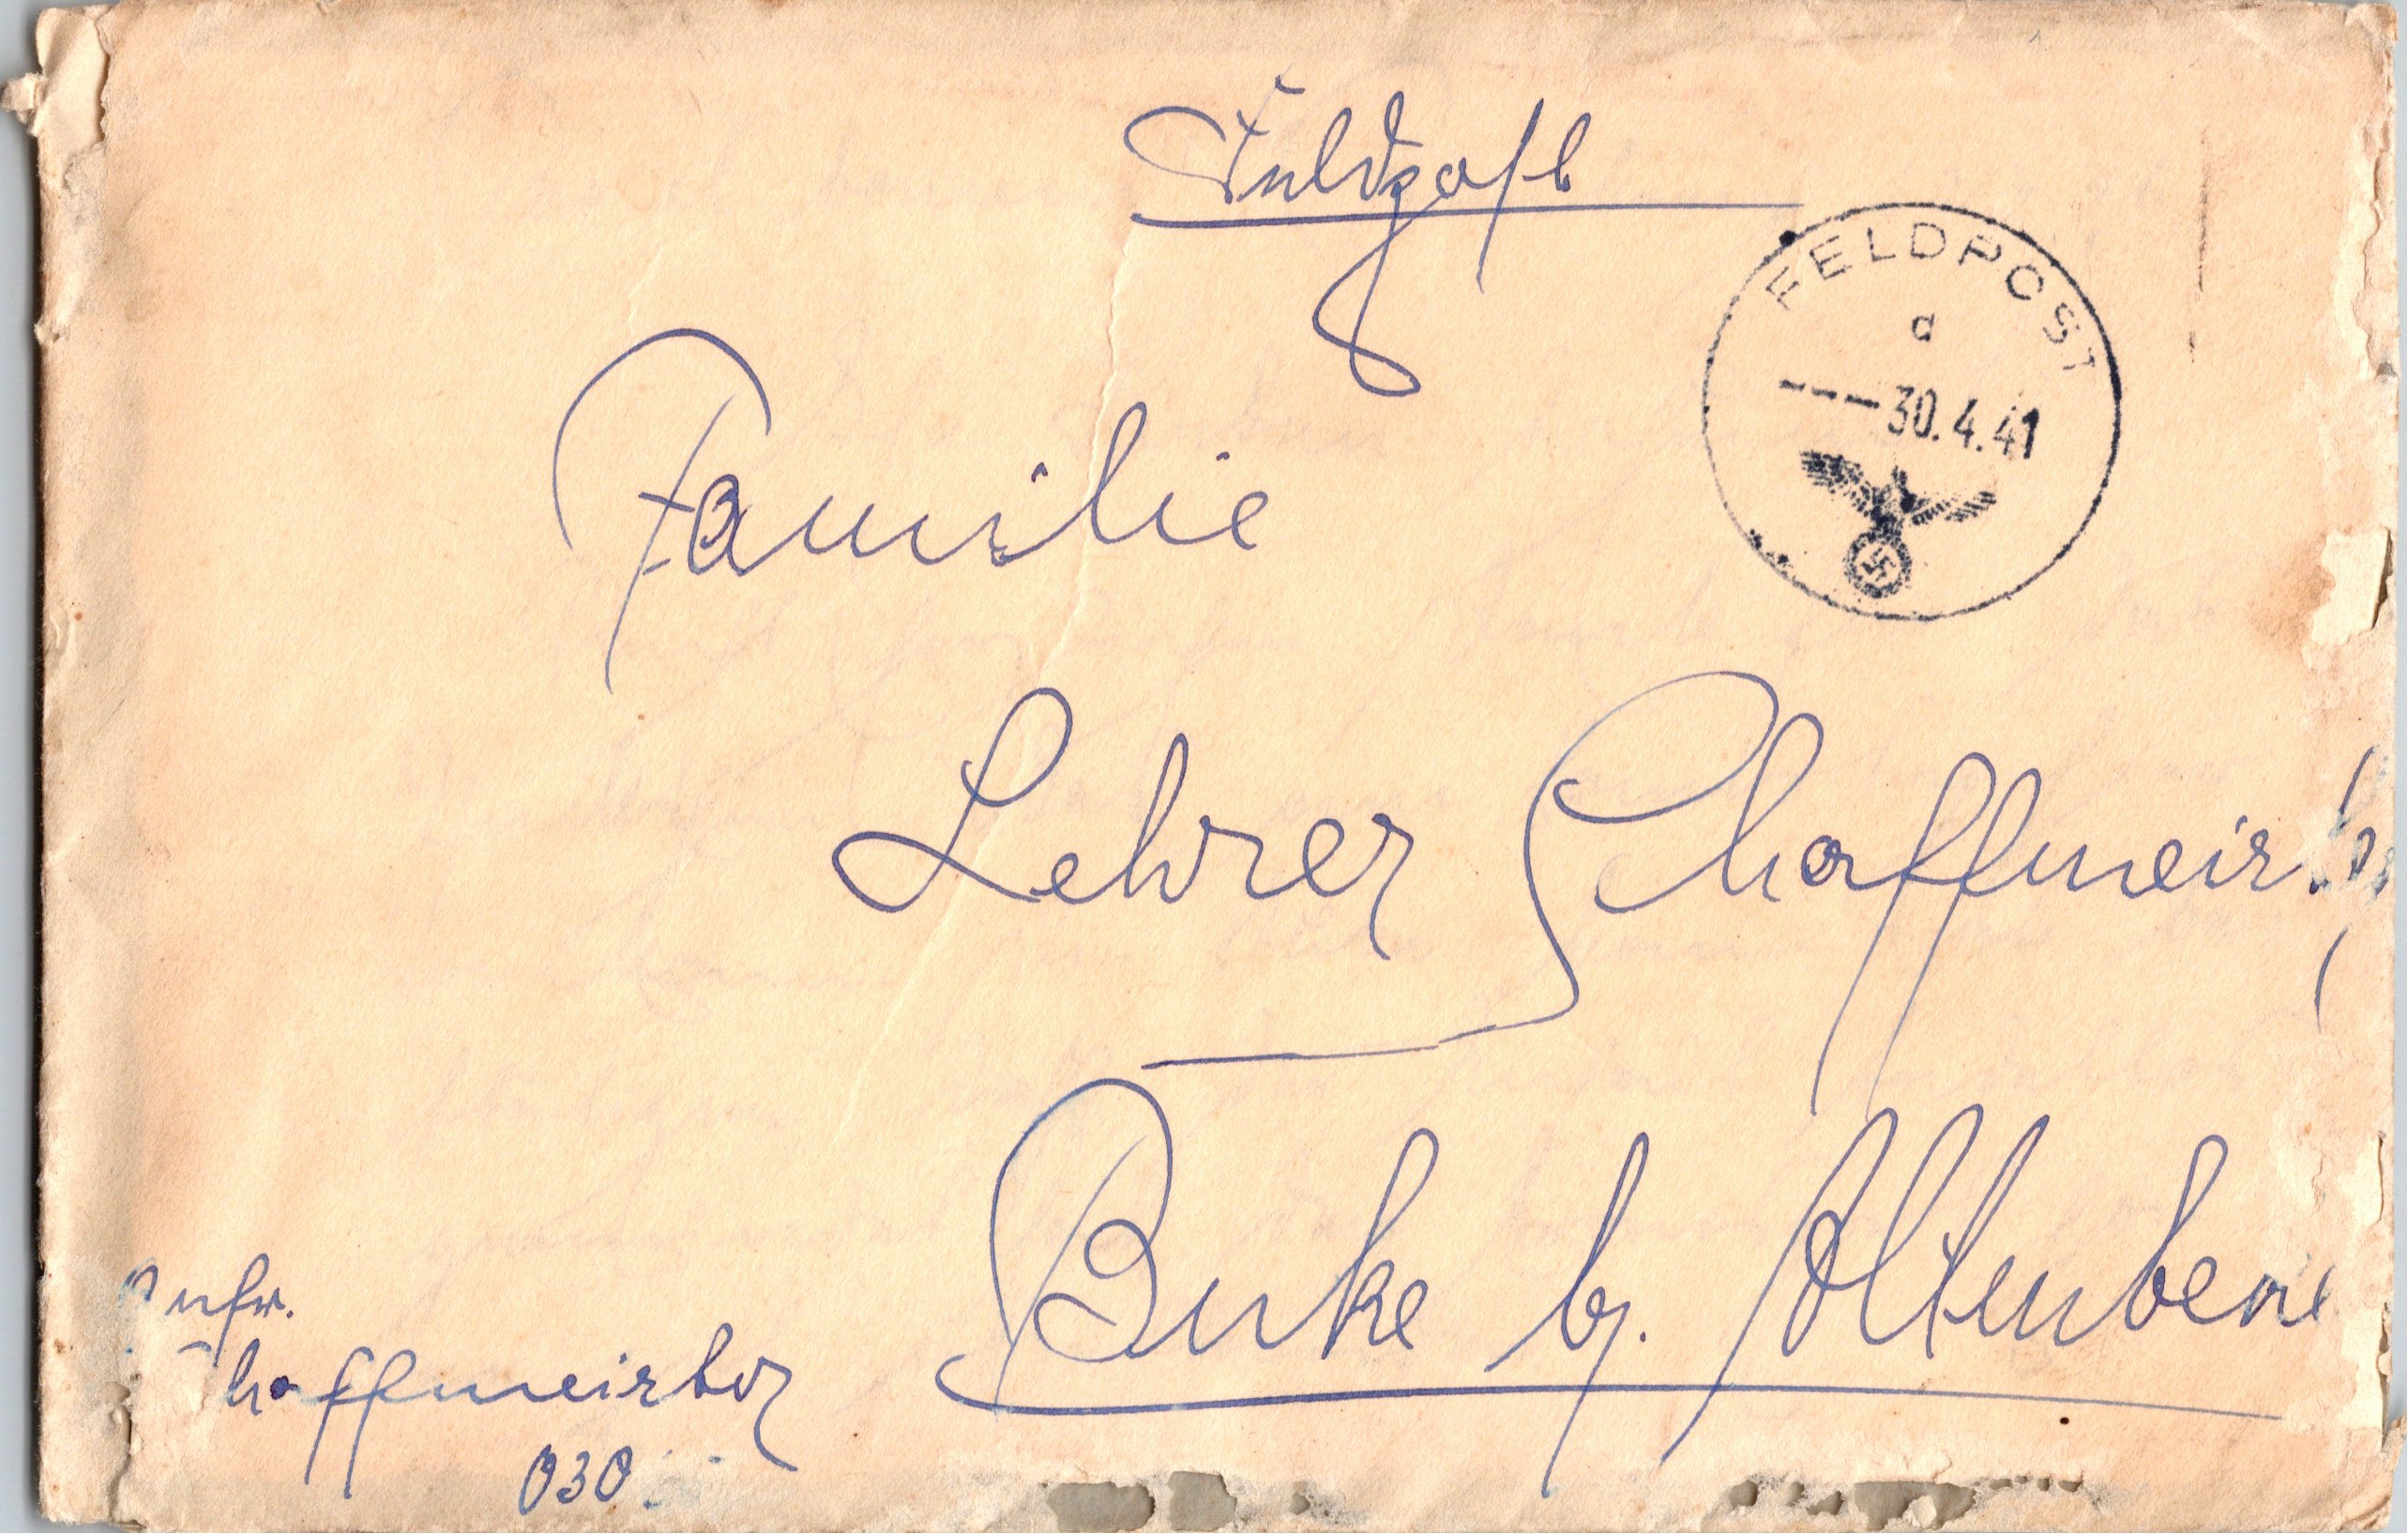 Feldpost
FELDPOST
d
---30.4.41
Familie
Lehrer Schaffmeist
Buke b. Altenbeke
Schaffmeister
030